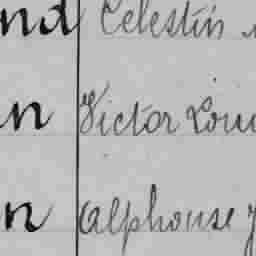 nd Célestin
n Victor Lou
n Alphonse J